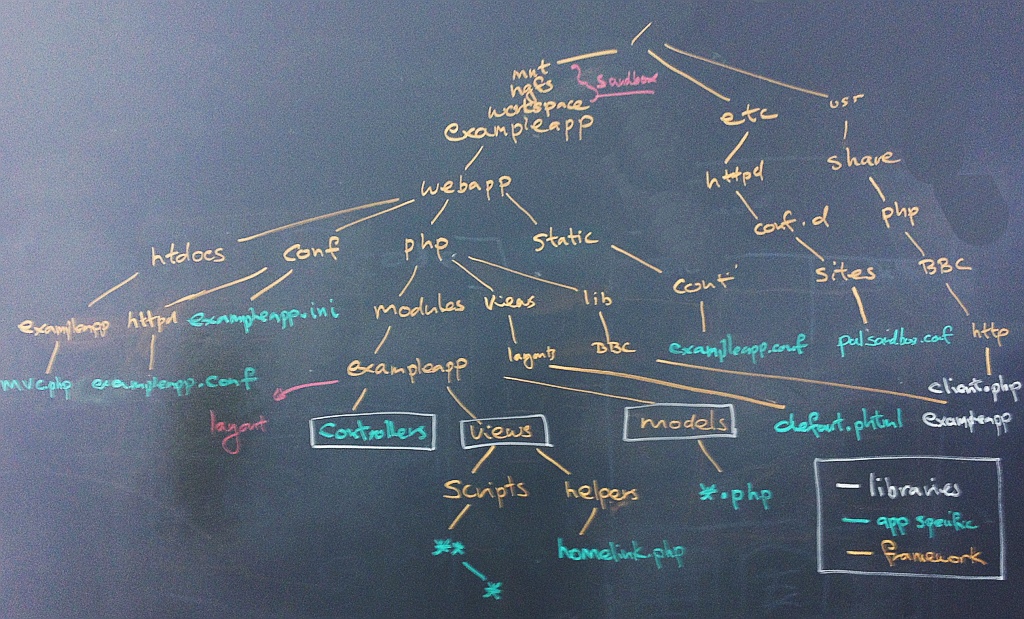 /
mnt
hgfs
workspace
exampleapp
sandbox
etc
usr
webapp
httpd
share
htdocs
conf
php
static
conf.d
php
exampleapp
httpd
exampleapp.ini
modules
views
lib
conf
sites
BBC
mvc.php
exampleapp.conf
exampleapp
layouts
BBC
exampleapp.conf
http
layout
controllers
views
models
defaut.phtml
client.php
exampleapp
scripts
helpers
*.php
**
*
homelink.php
libraries
app specific
framework